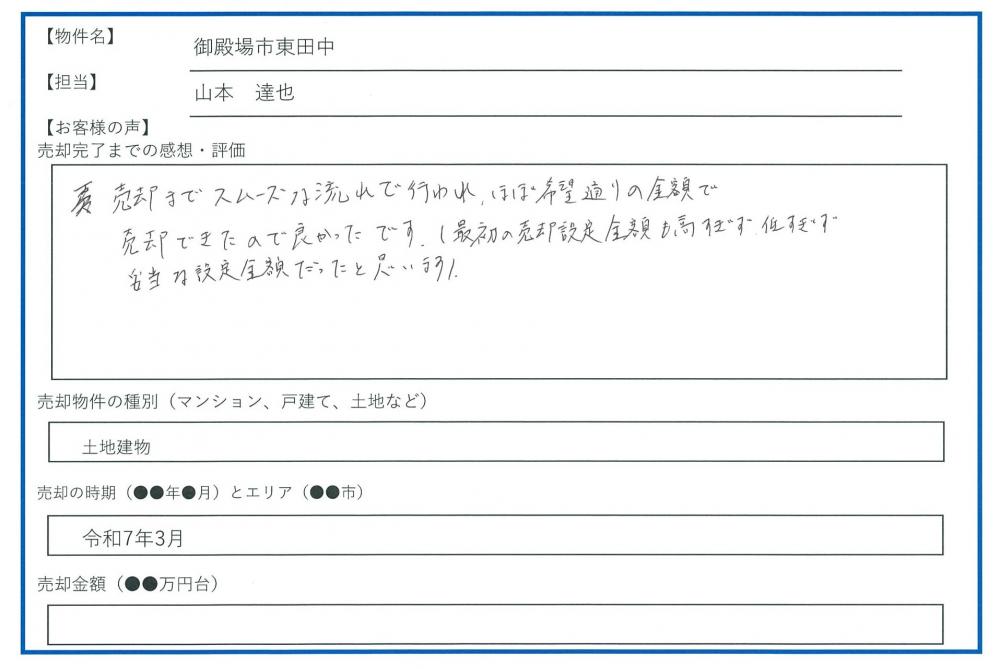 【物件名】
御殿場市東田中
【担当】
山本 達也
【お客様の声】
売却完了までの感想・評価
売却までスムーズな流れで行われ、ほぼ希望通りの金額で
売却できたので良かったです。(最初の売却設定金額も高すぎず、低すぎず
妥当な設定金額だったと思います)。
売却物件の種別（マンション、戸建て、土地など）
土地建物
売却の時期（●●年●月）とエリア（●●市）
令和7年3月
売却金額（●●万円台）